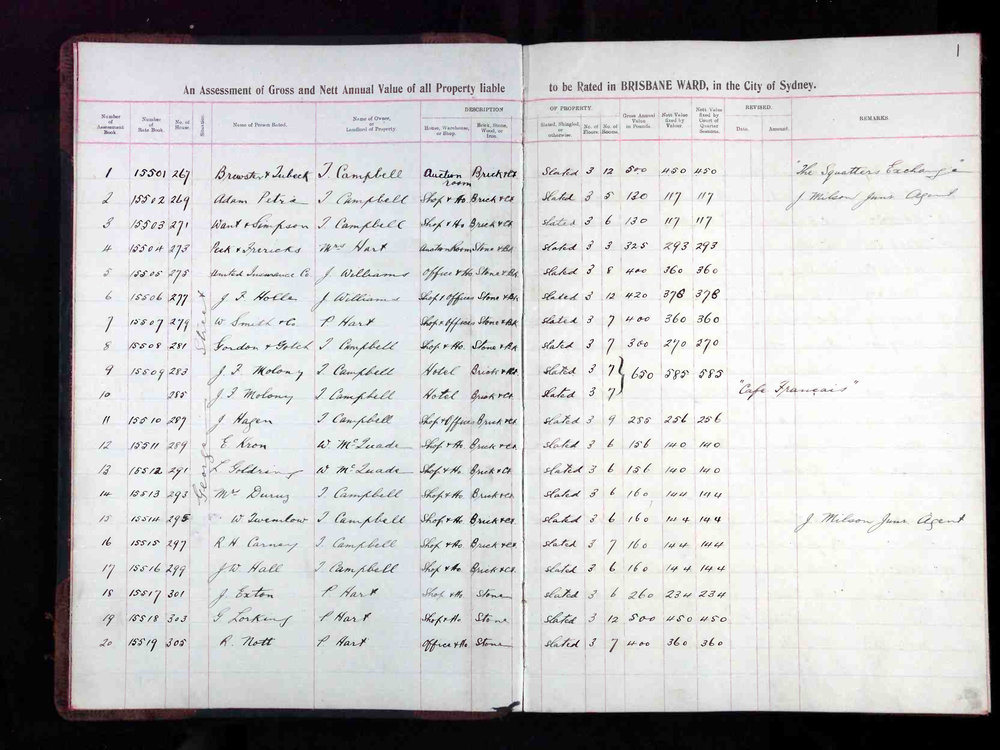 1
An Assessment of Gross and Nett Annual Value of all Property liable to be Rated in BRISBANE WARD, in the City of Sydney.
DESCRIPTION OF PROPERTY. REVISED.
Number of Assessment Book Number of Rate Book. No. of House. Situation. Name of Person Rated. Name of Owner, or Landlord of Property. House, Warehouse, or Shop. Brick, Stone, Wood, or Iron. Slated, Shingled, or otherwise. No. of Floors. No. of Rooms. Gross Annual Value in Pounds. Nett Value fixed by Valuer Nett Value fixed by Court of Quarter Sessions. Date. Amount. REMARKS.
George Street
1 15501 267 Brewster & Trebeck T. Campbell Auction room Brick & Slated 3 12 500 450 450 "The Squatters Exchange"
2 15502 269 Adam Petrie T Campbell Shop & Ho Brick & Slated 3 5 130 117 117 J Milson Junr Agent
3 15503 271 Want & Simpson T Campbell Shop & Ho Brick & slated 3 6 130 117 117
4 15504 273 Mrs Hart Auction Room Stone & slated 3 3 325 293 293
5 15505 275 United Insurance Co. J Williams Office & Ho Stone & slated 3 8 400 360 360
6 15506 277 J Williams Shop & Offices Stone & slated 3 12 420 378 378
7 15507 279 W Smith & Co P Hart Shop & Offices Stone & slated 3 7 400 360 360
8 15508 281 Gordon & Gotch T Campbell Shop & Ho. Stone & slated 3 7 300 270 270
9 15509 283 J F Molony T Campbell Hotel Brick & slated 3 7 650 585 585
10 285 J F Molony T Campbell Hotel Brick & slated 3 7 "Cafe Français"
11 15510 287 J Hagen T Campbell Shop & Offices Brick & slated 3 9 285 256 256
12 15511 289 E Kron W McQuade Shop & Ho Brick & slated 3 6 156 140 140
13 15512 291 L Goldring W McQuade Shop & Ho Brick & slated 3 6 156 140 140
14 15513 293 Mrs T Campbell Shop & Ho Brick & slated 3 6 160 144 144
15 15514 295 W Twemlow T Campbell Shop & Ho Brick & slated 3 6 160 144 144 J. Milson Junr Agent
16 15515 297 R H Carney T. Campbell Shop & Ho Brick & slated 3 7 160 144 144
17 15516 299 J W Hall T Campbell Shop & Ho Brick & slated 3 6 160 144 144
18 15517 301 J. Exton P Hart Shop & Ho Stone slated 3 6 260 234 234
19 15518 303 G Lorking P Hart Shop & Ho Stone slated 3 12 500 450 450
20 15519 305 R. Nott P. Hart Office & Ho Stone slated 3 7 400 360 360